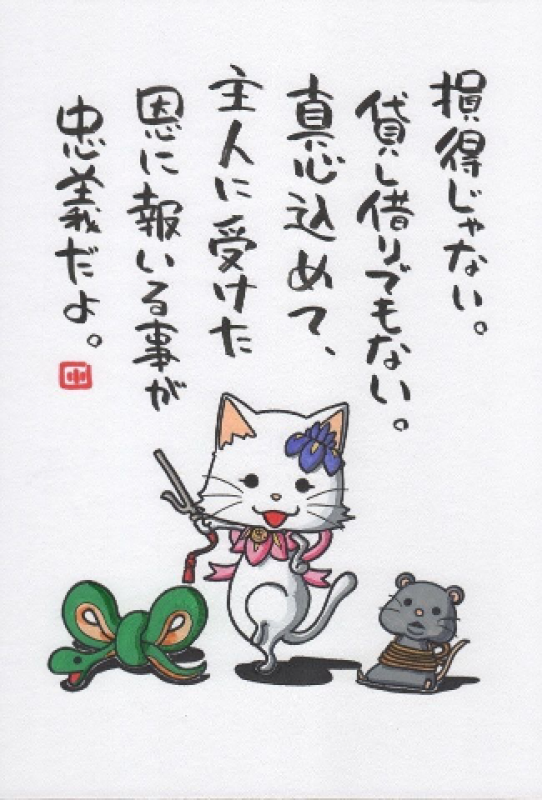 損得じゃない。
貸し借りでもない。
真心込めて、
主人に受けた
恩に報いる事が
忠義だよ。